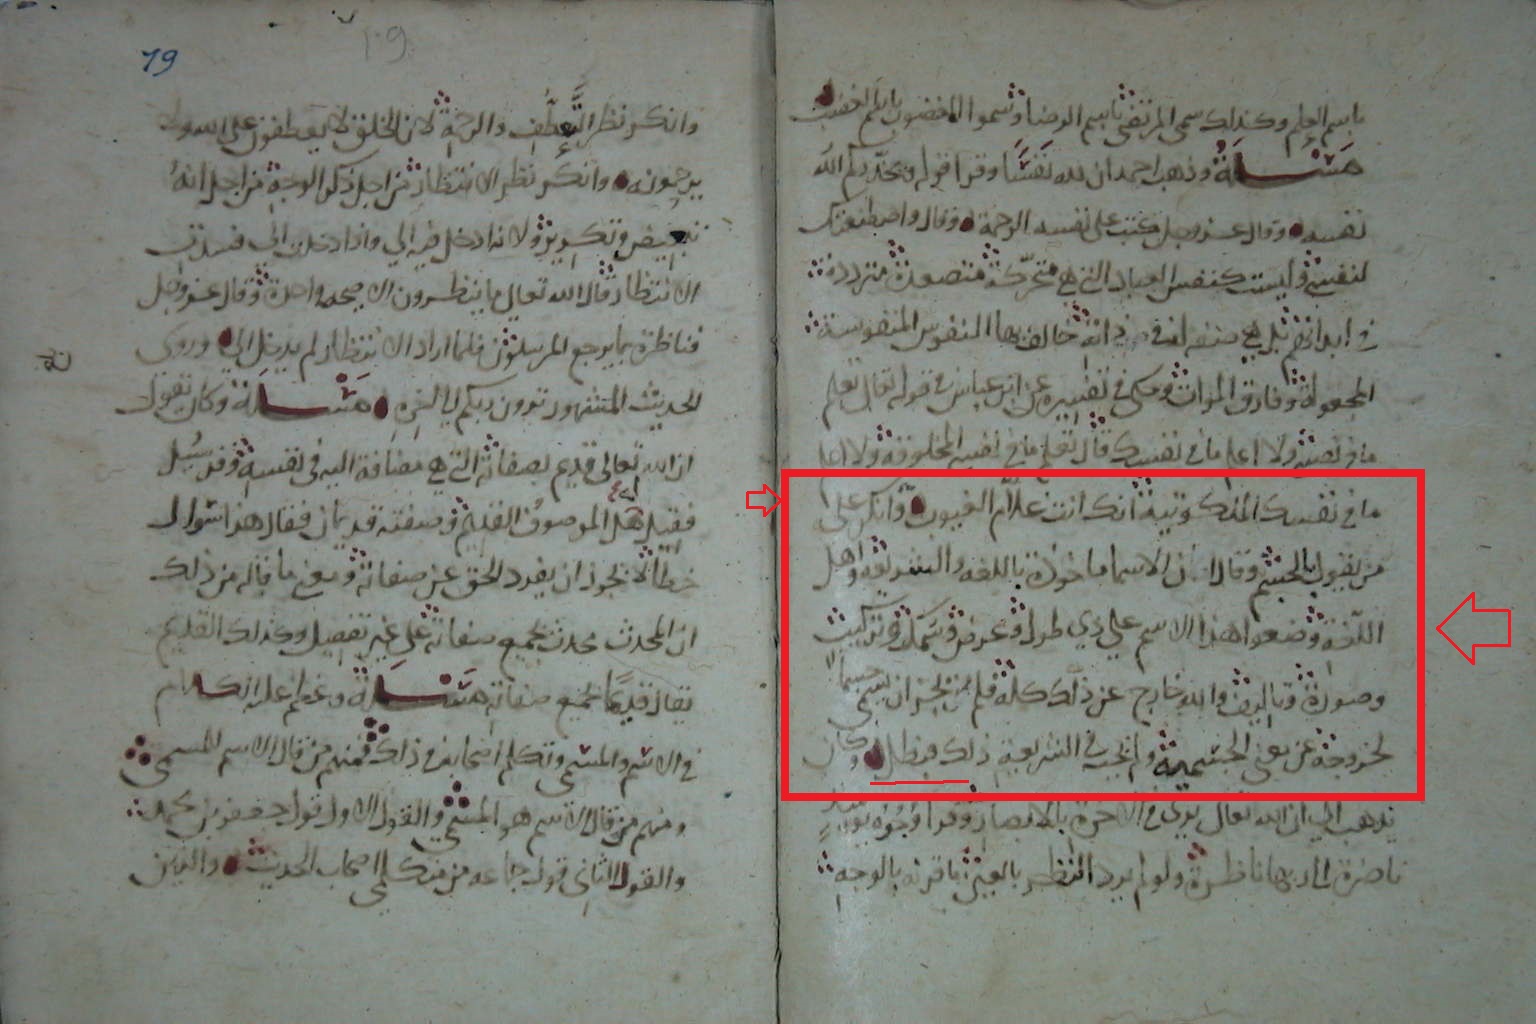 باسم العلم وكذلك سمى المرتضى باسم الرضا وسموا المغضوب باسم الغضب
مسألة وذهب احمد ان لله نفسا وقرا قوله ويحذركم الله
نفسه وقال عز وجل كتب على نفسه الرحمة وقال واصطنعتك
لنفسي وليست كنفس العباد التي هي متحركة متصعدة مترددة
في ابدانهم بل هي صفة له في ذاته خالف بها النفوس المنفوسة
المجعولة وفارق الموات وحكى في تفسيره عن ابن عباس في قوله تعالى تعلم
ما في نفسي ولا اعلم ما في نفسك قال تعلم ما في نفسي المخلوقة ولا اعلم
ما في نفسك الملكوتية انك انت علام الغيوب وانكر على
من يقول بالجسم وقال ان الاسما ماخوذة باللغه والشريعه واهل
اللغة وضعوا هذا الاسم على ذي طول وعرض وسمك وتركيب
وصورة وتاليف والله خارج عن ذلك كله فلم يجز ان يسمى جسما
لخروجه عن معنى الجسمية ولم يجئ في الشريعة ذلك فبطل وكان
يذهب الى ان الله تعالى يرى في الاخرة بالابصار وقرا وجوه يومئذ
ناضرة الى ربها ناظرة ولو لم يرد النظر بالعين ما قرنه بالوجه
79
109
وانكر نظر التعطف والرحمة لان الخلق لا يتعطفون على الله ولا
يرحمونه وانكر نظر الانتظار من اجل ذكر الوجه من اجل انه
تبعيض وتكرير ولانه ادخل فيه الى واذا دخلت الى فسدت
الانتظار قال الله تعالى ما ينظرون الا صيحه واحدة وقال عز وجل
فناظرة بم يرجع المرسلون فلما اراد الانتظار لم يدخل الى وروى
الحديث المشهور ترون ربكم الى اخره مسألة وكان يقول
ان الله تعالى قديم بصفاته التي هي مضافة اليه في نفسه وقد سئل
فقيل هل الموصوف القديم وصفته قديمان فقال هذا سؤال
خطأ لا يجوز ان ينفرد الحق عن صفاته ومعنى ما قاله من ذلك
ان المحدث محدث بجميع صفاته على غير تفصيل وكذلك القديم
تعالى قديم بجميع صفاته مسألة وعظم عليه الكلام
في الاسم والمسمى وتكلم اصحابه في ذلك فمنهم من قال الاسم للمسمى
ومنهم من قال الاسم هو المسمى والقول الاول قول جعفر بن محمد
والقول الثاني قول جماعه من متكلمي اصحاب الحديث والذين